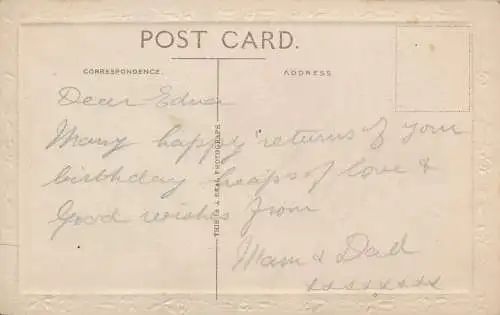 POST CARD.
CORRESPONDENCE.
ADDRESS.
THIS IS A REAL PHOTOGRAPH
Dear Edna
Many happy returns of your
birthday heaps of love &
Good wishes from
Mam & Dad
xxxxxxxx